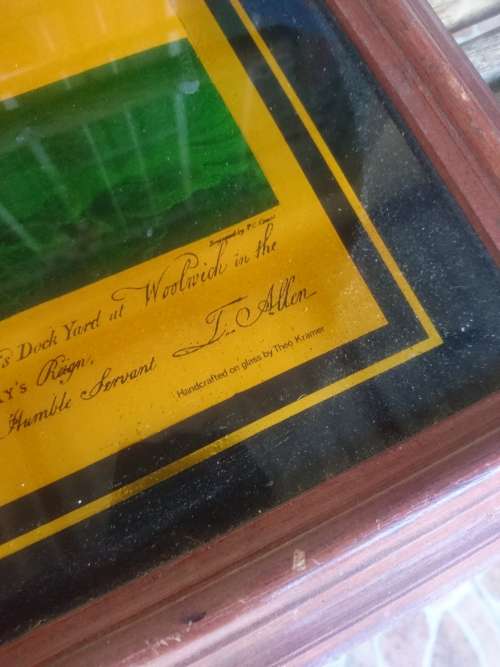 Engraved by P. C. Canot
's Dock Yard at Woolwich in the
Y's Reign.
Humble Servant T. Allen
Handcrafted on glass by Theo Kramer